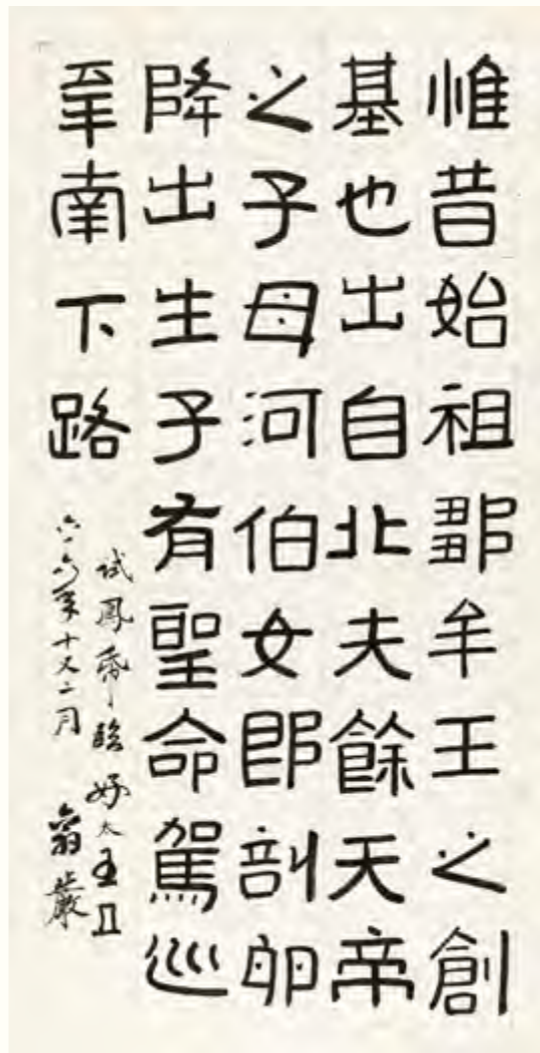 惟昔始祖鄒牟王之創
基也出自北夫餘天帝
之子母河伯女郎剖卵
降出生子有聖命駕巡
幸南下路
試鳳帚臨好太王
六六年十又二月 翁嚴